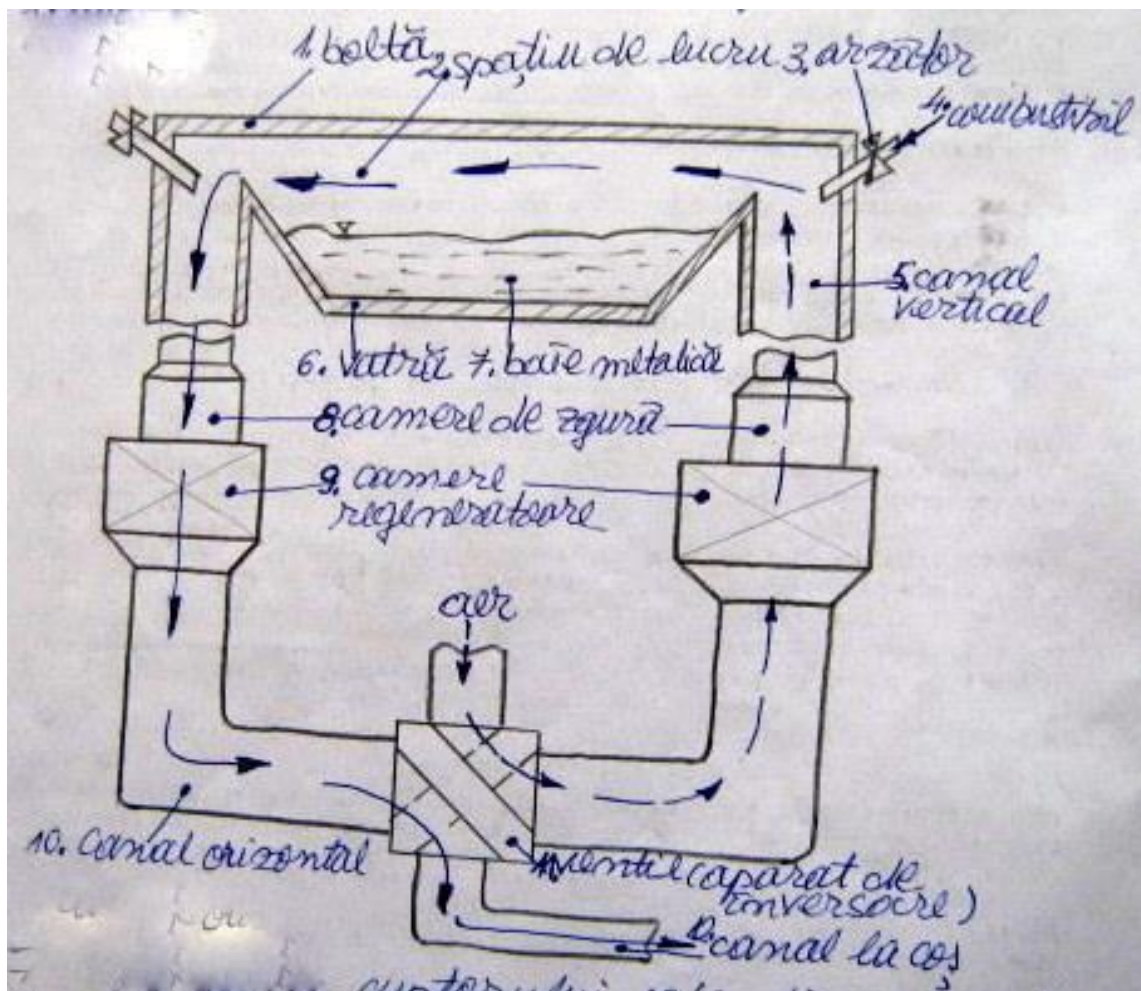 1. boltă 2. spațiu de lucru 3. arzător
4. combustibil
5. canal
vertical
6. vatră 7. baie metalică
8. camere de zgură
9. camere
regeneratoare
aer
10. canal orizontal
11. ventil (aparat de
inversare)
canal la coș
cuptorului